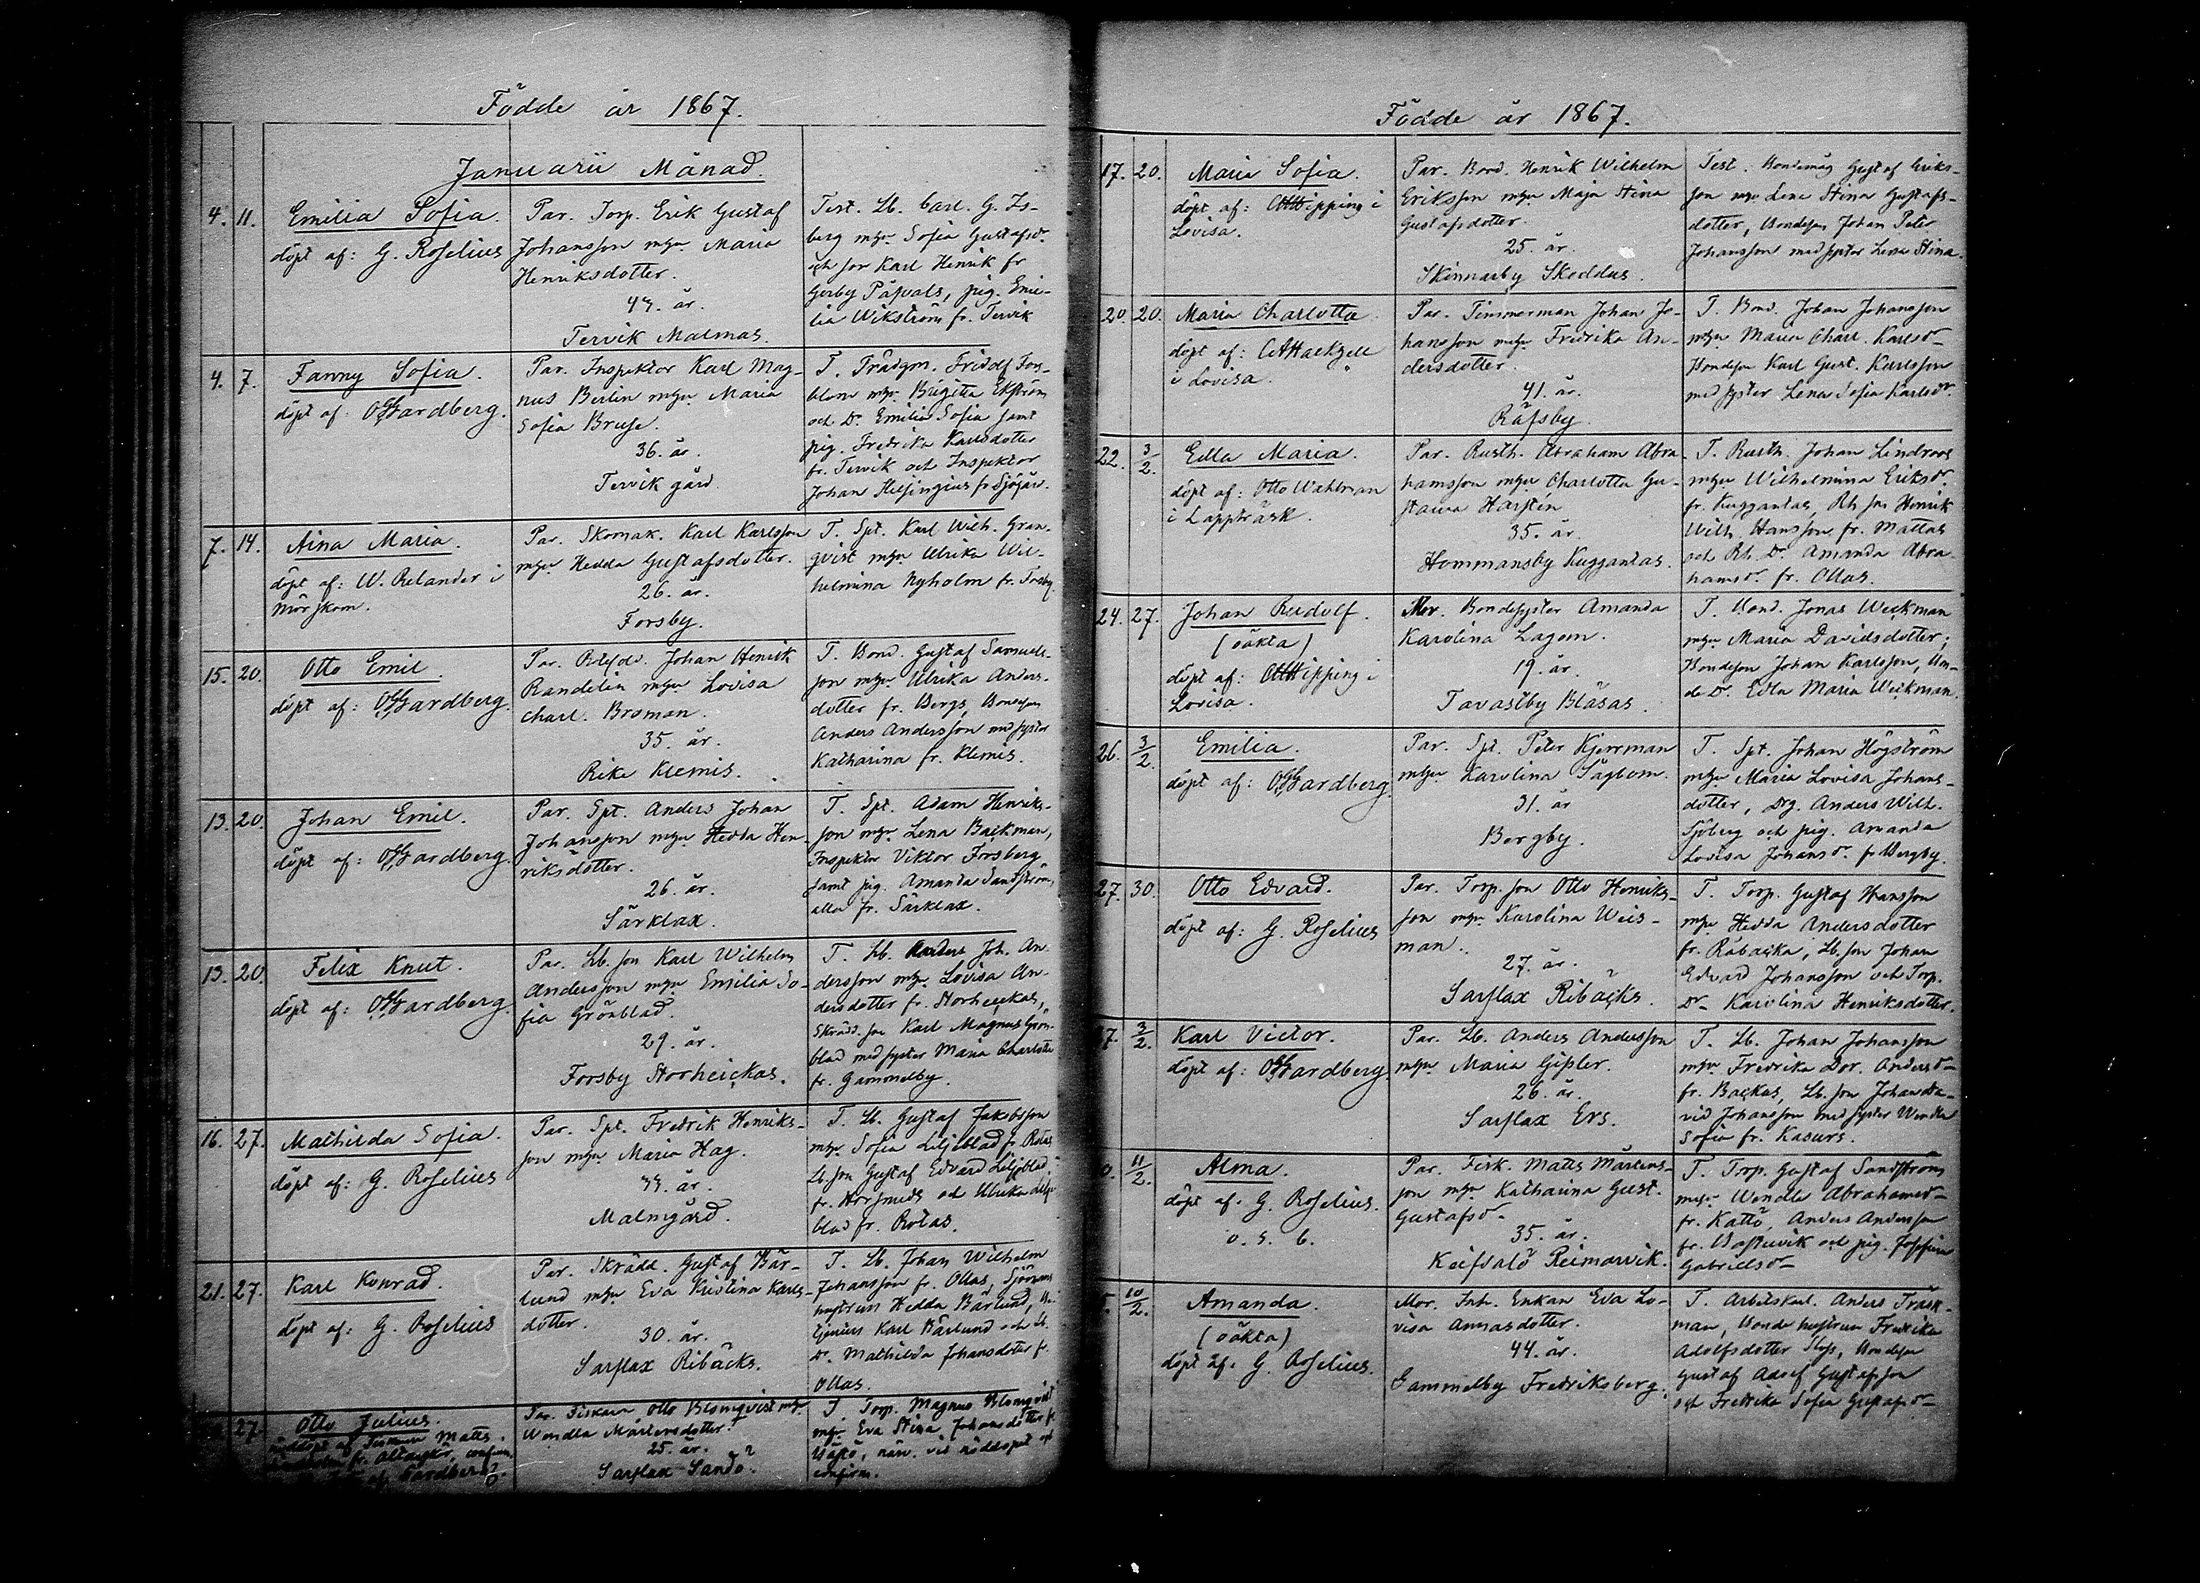 Födde år 1867.
Januarii Månad.
4. 11. Emilia Sofia.
döpt af: G. Roselius
Par. Torp. Erik Gustaf
Johansson m hu Maria
Henriksdotter.
43. år.
Tervik Malmas.
Test. Lb. Carl. G. Is-
berg m hu Sofia Gustafsdr
och son Karl Henrik fr
Gerby Påfvals, pig. Emi-
lia Wikström fr. Tervik
4. 7. Fanny Sofia.
döpt af: Gardberg.
Par. Inspektor Karl Mag-
nus Berlin m hu Maria
Sofia Bruse.
36. år.
Tervik gård.
T. Trädgm. Fridolf Fors-
blom m hu Brigitta Ekström
och Dr. Emilia Sofia samt
pig. Fredrika Karlsdotter
fr. Tervik och Inspektor
Johan Helsingius fr Sjögår.
7. 14. Aina Maria.
döpt af: W. Relander i
Mörskom.
Par. Skomak. Karl Karlsson
m hu Hedda Gustafsdotter.
26. år.
Forsby.
T. Spt. Karl Wilh. Gran-
qvist m hu Ulrika Wil-
helmina Nyholm fr. Forsby
15. 20. Otto Emil.
döpt af: Gardberg.
Par. Johan Henrik
Randelin m hu Lovisa
Charl. Broman.
35. år.
Rike Klemis.
T. Bond. Gustaf Samuels-
son m hu Ulrika Anders-
dotter fr. Bergs, Bondeson
Anders Andersson med syster
Katharina fr. Klemis.
13. 20. Johan Emil.
döpt af: Gardberg.
Par. Spt. Anders Johan
Johansson m hu Hedda Hen-
riksdotter.
26. år.
Särklax.
T. Spt. Adam Henriks-
son m hu Lena Backman,
Inspektor Viktor Forsberg
samt pig. Amanda Sandström,
alla fr. Särklax.
13. 20. Felix Knut.
döpt af: Gardberg.
Par. Lb. son Karl Wilhelm
Andersson m hu Emilia So-
fia Grönblad.
29. år.
Forsby Storheickas.
T. Lb. Anders Joh. An-
dersson m hu Lovisa An-
dersdotter fr. Storheickas,
Skrädd. son Karl Magnus Grön-
blad med syster Maria Charlotta
fr. Gammelby.
16. 27. Mathilda Sofia.
döpt af: G. Roselius
Par. Spt. Fredrik Henriks-
son m hu Maria Hag.
år.
Malmgård.
T. Lb. Gustaf Jakobsson
m hu Sofia Liljeblad fr. Rolas
Lb. son Gustaf Edvard Liljeblad
fr. och Ulrika Lilje-
blad fr. Rolas.
21. 27. Karl Konrad.
döpt af: G. Roselius
Par. Skrädd. Gustaf Bär-
lund m hu Eva Kristina Karls-
dotter.
30. år.
Sarflax Ribäcks.
T. Lb. Johan Wilhelm
Johansson fr. Ollas, Sjöman
hustrun Hedda Bärlund,
Karl Bärlund och Lb.
Dr. Mathilda Johansdotter fr.
Ollas.
27. Otto Julius.
nöddöpt af Fiskaren Matts
fr.
af Gardberg.
Par. Fiskare Otto Blomqvist m hu
Wendla Mårtensdotter.
25. år.
Sarflax Sandö.
T. Torp. Magnus Blomqvist
m hu Eva Stina Johansdotter fr.
närv. vid nöddopet och
confirm.
Födde år 1867.
17. 20. Maria Sofia.
döpt af: Hipping i
Lovisa.
Par. Bond. Henrik Wilhelm
Eriksson m hu Maja Stina
Gustafsdotter.
25. år.
Skinnarby Skoddus.
Test. Bondemåg Gustaf Eriks-
son m hu Lena Stina Gustafs-
dotter, Bondeson Johan Peter
Johansson med syster Lena Stina.
20. 20. Maria Charlotta.
döpt af:
i Lovisa.
Par. Timmerman Johan Jo-
hansson m hu Fredrika An-
dersdotter.
41. år.
Räfsby.
T. Bond. Johan Johansson
m hu Maria Charl. Karlsdr
Bondeson Karl Gust. Karlsson
med syster Lena Sofia Karlsdr.
22. 3/2. Edla Maria.
döpt af: Otto Wahlman
i Lappträsk.
Par. Rusth. Abraham Abra-
hamsson m hu Charlotta Gu-
stava Harstén
35. år.
Hommansby Kuggantas.
T. Rusth. Johan Lindroos
m hu Wilhelmina Eriksdr.
fr. Kuggantas, Rh. son Henrik
Wilh. Hansson fr. Mattas
och Rh. Dr. Amanda Abra-
hamsdr. fr. Ollas.
24. 27. Johan Rudolf.
(oäkta)
döpt af: Hipping i
Lovisa.
Mor. Bondesyster Amanda
Karolina Lagom.
19. år.
Tavastby Bläsas.
T. Bond. Jonas Weckman
m hu Maria Davidsdotter;
Bondeson Johan Karlsson, Bon-
de Dr. Edla Maria Weckman.
26. 3/2. Emilia.
döpt af: Gardberg.
Par. Spt. Peter Kjerrman
m hu Karolina Sågbom.
31. år
Borgby.
T. Spt. Johan Högström
m hu Maria Lovisa Johans-
dotter, Drg. Anders Wilh.
Sjöberg och pig. Amanda
Lovisa Johansdr. fr Borgby.
27. 30. Otto Edvard.
döpt af: G. Roselius
Par. Torp. son Otto Henriks-
son m hu Karolina Weis-
man.
27. år.
Sarflax Ribäcks.
T. Torp. Gustaf Hansson
m hu Hedda Andersdotter
fr. Råbacka, Lb. son Johan
Edvard Johansson och Torp.
Dr Karolina Henriksdotter.
7. 3/2. Karl Victor.
döpt af: Gardberg.
Par. Lb. Anders Andersson
m hu Maria Gisler.
26. år.
Sarflax Ers.
T. Lb. Johan Johansson
m hu Fredrika Dor. Andersdr
fr. Backas, Lb. son Johan Da-
vid Johansson med syster Wendla
Sofia fr. Kasurs.
0. 11/2. Alma.
döpt af. G. Roselius.
o. s. b.
Par. Fisk. Matts Mårtens-
son m hu Katharina Gust.
Gustafsdr.
35. år.
Keifsalö Reimarvik.
T. Torp. Gustaf Sandström
m hu Wendla Abrahamsdr
fr. Kattö, Anders Andersson
fr. Bastuvik och pig. Josefina
Gabrielsdr
10/2. Amanda.
(oäkta)
döpt af. G. Roselius.
Mor. Inh. Enkan Eva Lo-
visa Annasdotter.
44. år.
Gammelby Fredriksberg.
T. Arbetskarl. Anders Träsk-
man, Bonde hustrun Fredrika
Adolfsdotter Bondeson
Gustaf Adolf Gustafsson
och Fredrika Sofia Gustafsdr